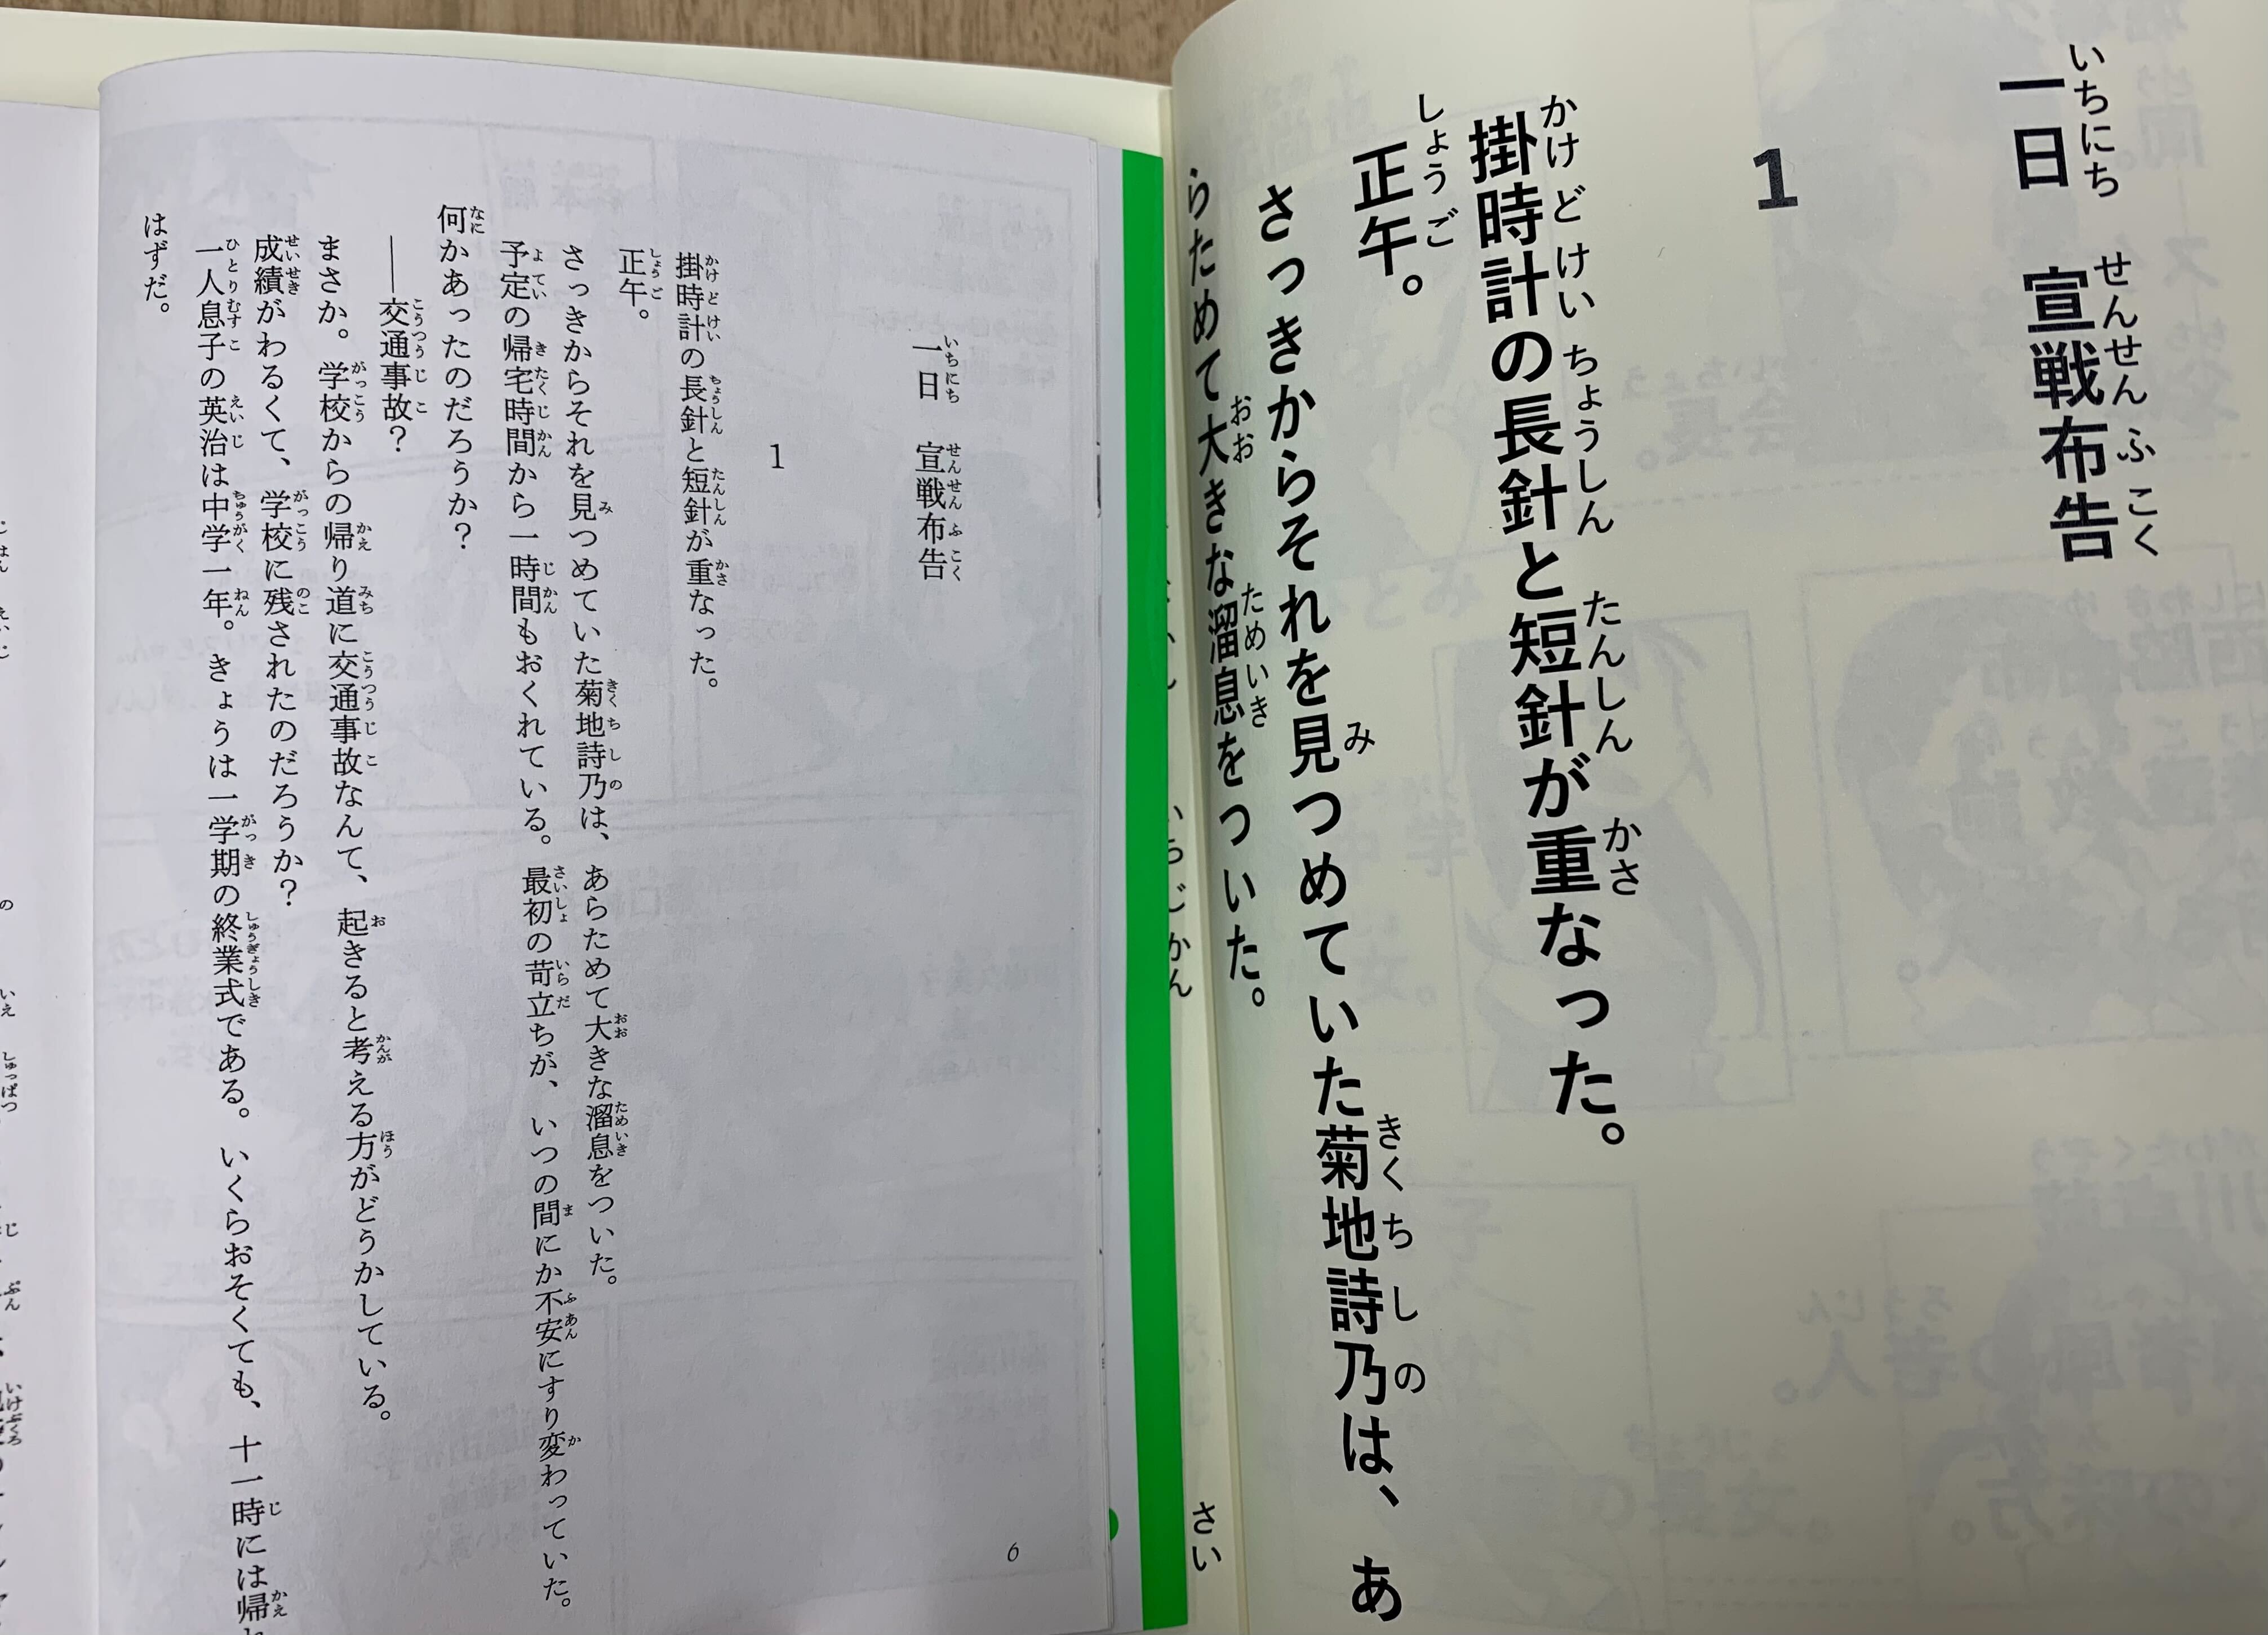 一日　宣戦布告
1
掛時計の長針と短針が重なった。
正午。
さっきからそれを見つめていた菊地詩乃は、あ
らためて大きな溜息をついた。
一日　宣戦布告
1
掛時計の長針と短針が重なった。
正午。
さっきからそれを見つめていた菊地詩乃は、あらためて大きな溜息をついた。
予定の帰宅時間から一時間もおくれている。最初の苛立ちが、いつの間にか不安にすり変わっていた。
何かあったのだろうか？
――交通事故？
まさか。学校からの帰り道に交通事故なんて、起きると考える方がどうかしている。
成績がわるくて、学校に残されたのだろうか？
一人息子の英治は中学一年。きょうは一学期の終業式である。いくらおそくても、十一時には帰
はずだ。
6